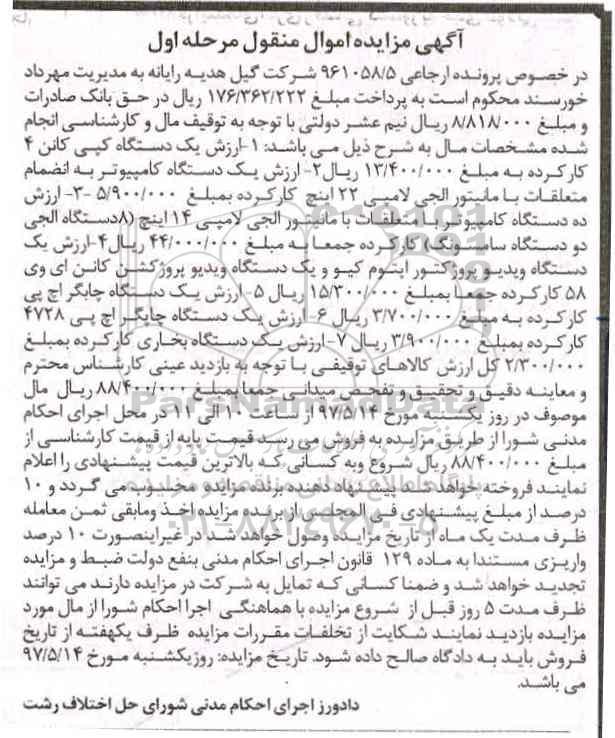 آگهی مزایده اموال منقول مرحله اول
در خصوص پرونده ارجاعی ۹۶۱۰۵۸/۵ شرکت گیل هدیه رایانه به مدیریت مهرداد
خورسند محکوم است به پرداخت مبلغ ۱۷۶/۳۶۲/۲۲۲ ریال در حق بانک صادرات
و مبلغ ۸/۸۱۸/۰۰۰ ریال نیم عشر دولتی با توجه به توقیف مال و کارشناسی انجام
شده مشخصات مال به شرح ذیل می باشد: ۱-ارزش یک دستگاه کپی کانن ۴
کارکرده به مبلغ ۱۳/۴۰۰/۰۰۰ ریال۲- ارزش یک دستگاه کامپیوتر به انضمام
متعلقات با مانیتور الجی لامپی ۲۲ اینچ کارکرده بمبلغ ۵/۹۰۰/۰۰۰ -۳- ارزش
ده دستگاه کامپیوتر با متعلقات با مانیتور الجی لامپی ۱۴ اینچ (۸دستگاه الجی
دو دستگاه سامسونگ) کارکرده جمعا به مبلغ ۴۴/۰۰۰/۰۰۰ ریال۴-ارزش یک
دستگاه ویدیو پروژکتور اپتوم کیو و یک دستگاه ویدیو پروژکشن کانن ای وی
۵۸ کارکرده جمعا بمبلغ ۱۵/۳۰۰/۰۰۰ ریال ۵- ارزش یک دستگاه چاپگر اچ پی
کارکرده به مبلغ ۳/۷۰۰/۰۰۰ ریال ۶- ارزش یک دستگاه چاپگر اچ پی ۴۷۲۸
کارکرده بمبلغ ۳/۹۰۰/۰۰۰ ریال ۷- ارزش یک دستگاه بخاری کارکرده بمبلغ
۲/۳۰۰/۰۰۰ کل ارزش کالاهای توقیفی با توجه به بازدید عینی کارشناس محترم
و معاینه دقیق و تحقیق و تفحص میدانی جمعا بمبلغ ۸۸/۴۰۰/۰۰۰ ریال مال
موصوف در روز یکشنبه مورخ ۹۷/۵/۱۴ از ساعت ۱۰ الی ۱۱ در محل اجرای احکام
مدنی شورا از طریق مزایده به فروش می رسد قیمت پایه از قیمت کارشناسی از
مبلغ ۸۸/۴۰۰/۰۰۰ ریال شروع وبه کسانی که بالاترین قیمت پیشنهادی را اعلام
نمایند فروخته خواهد شد پیشنهاد دهنده برنده مزایده محسوب می گردد و ۱۰
درصد از مبلغ پیشنهادی فی المجلس از برنده مزایده اخذ ومابقی ثمن معامله
ظرف مدت یک ماه از تاریخ مزایده وصول خواهد شد در غیراینصورت ۱۰ درصد
واریزی مستندا به ماده ۱۲۹ قانون اجرای احکام مدنی بنفع دولت ضبط و مزایده
تجدید خواهد شد و ضمنا کسانی که تمایل به شرکت در مزایده دارند می توانند
ظرف مدت ۵ روز قبل از شروع مزایده با هماهنگی اجرا احکام شورا از مال مورد
مزایده بازدید نمایند شکایت از تخلفات مقررات مزایده ظرف یکهفته از تاریخ
فروش باید به دادگاه صالح داده شود. تاریخ مزایده: روز یکشنبه مورخ ۹۷/۵/۱۴
می باشد.
دادورز اجرای احکام مدنی شورای حل اختلاف رشت
ParsNamadData
۰۲۱-۸۸۳۴۹۶۷۰-۵